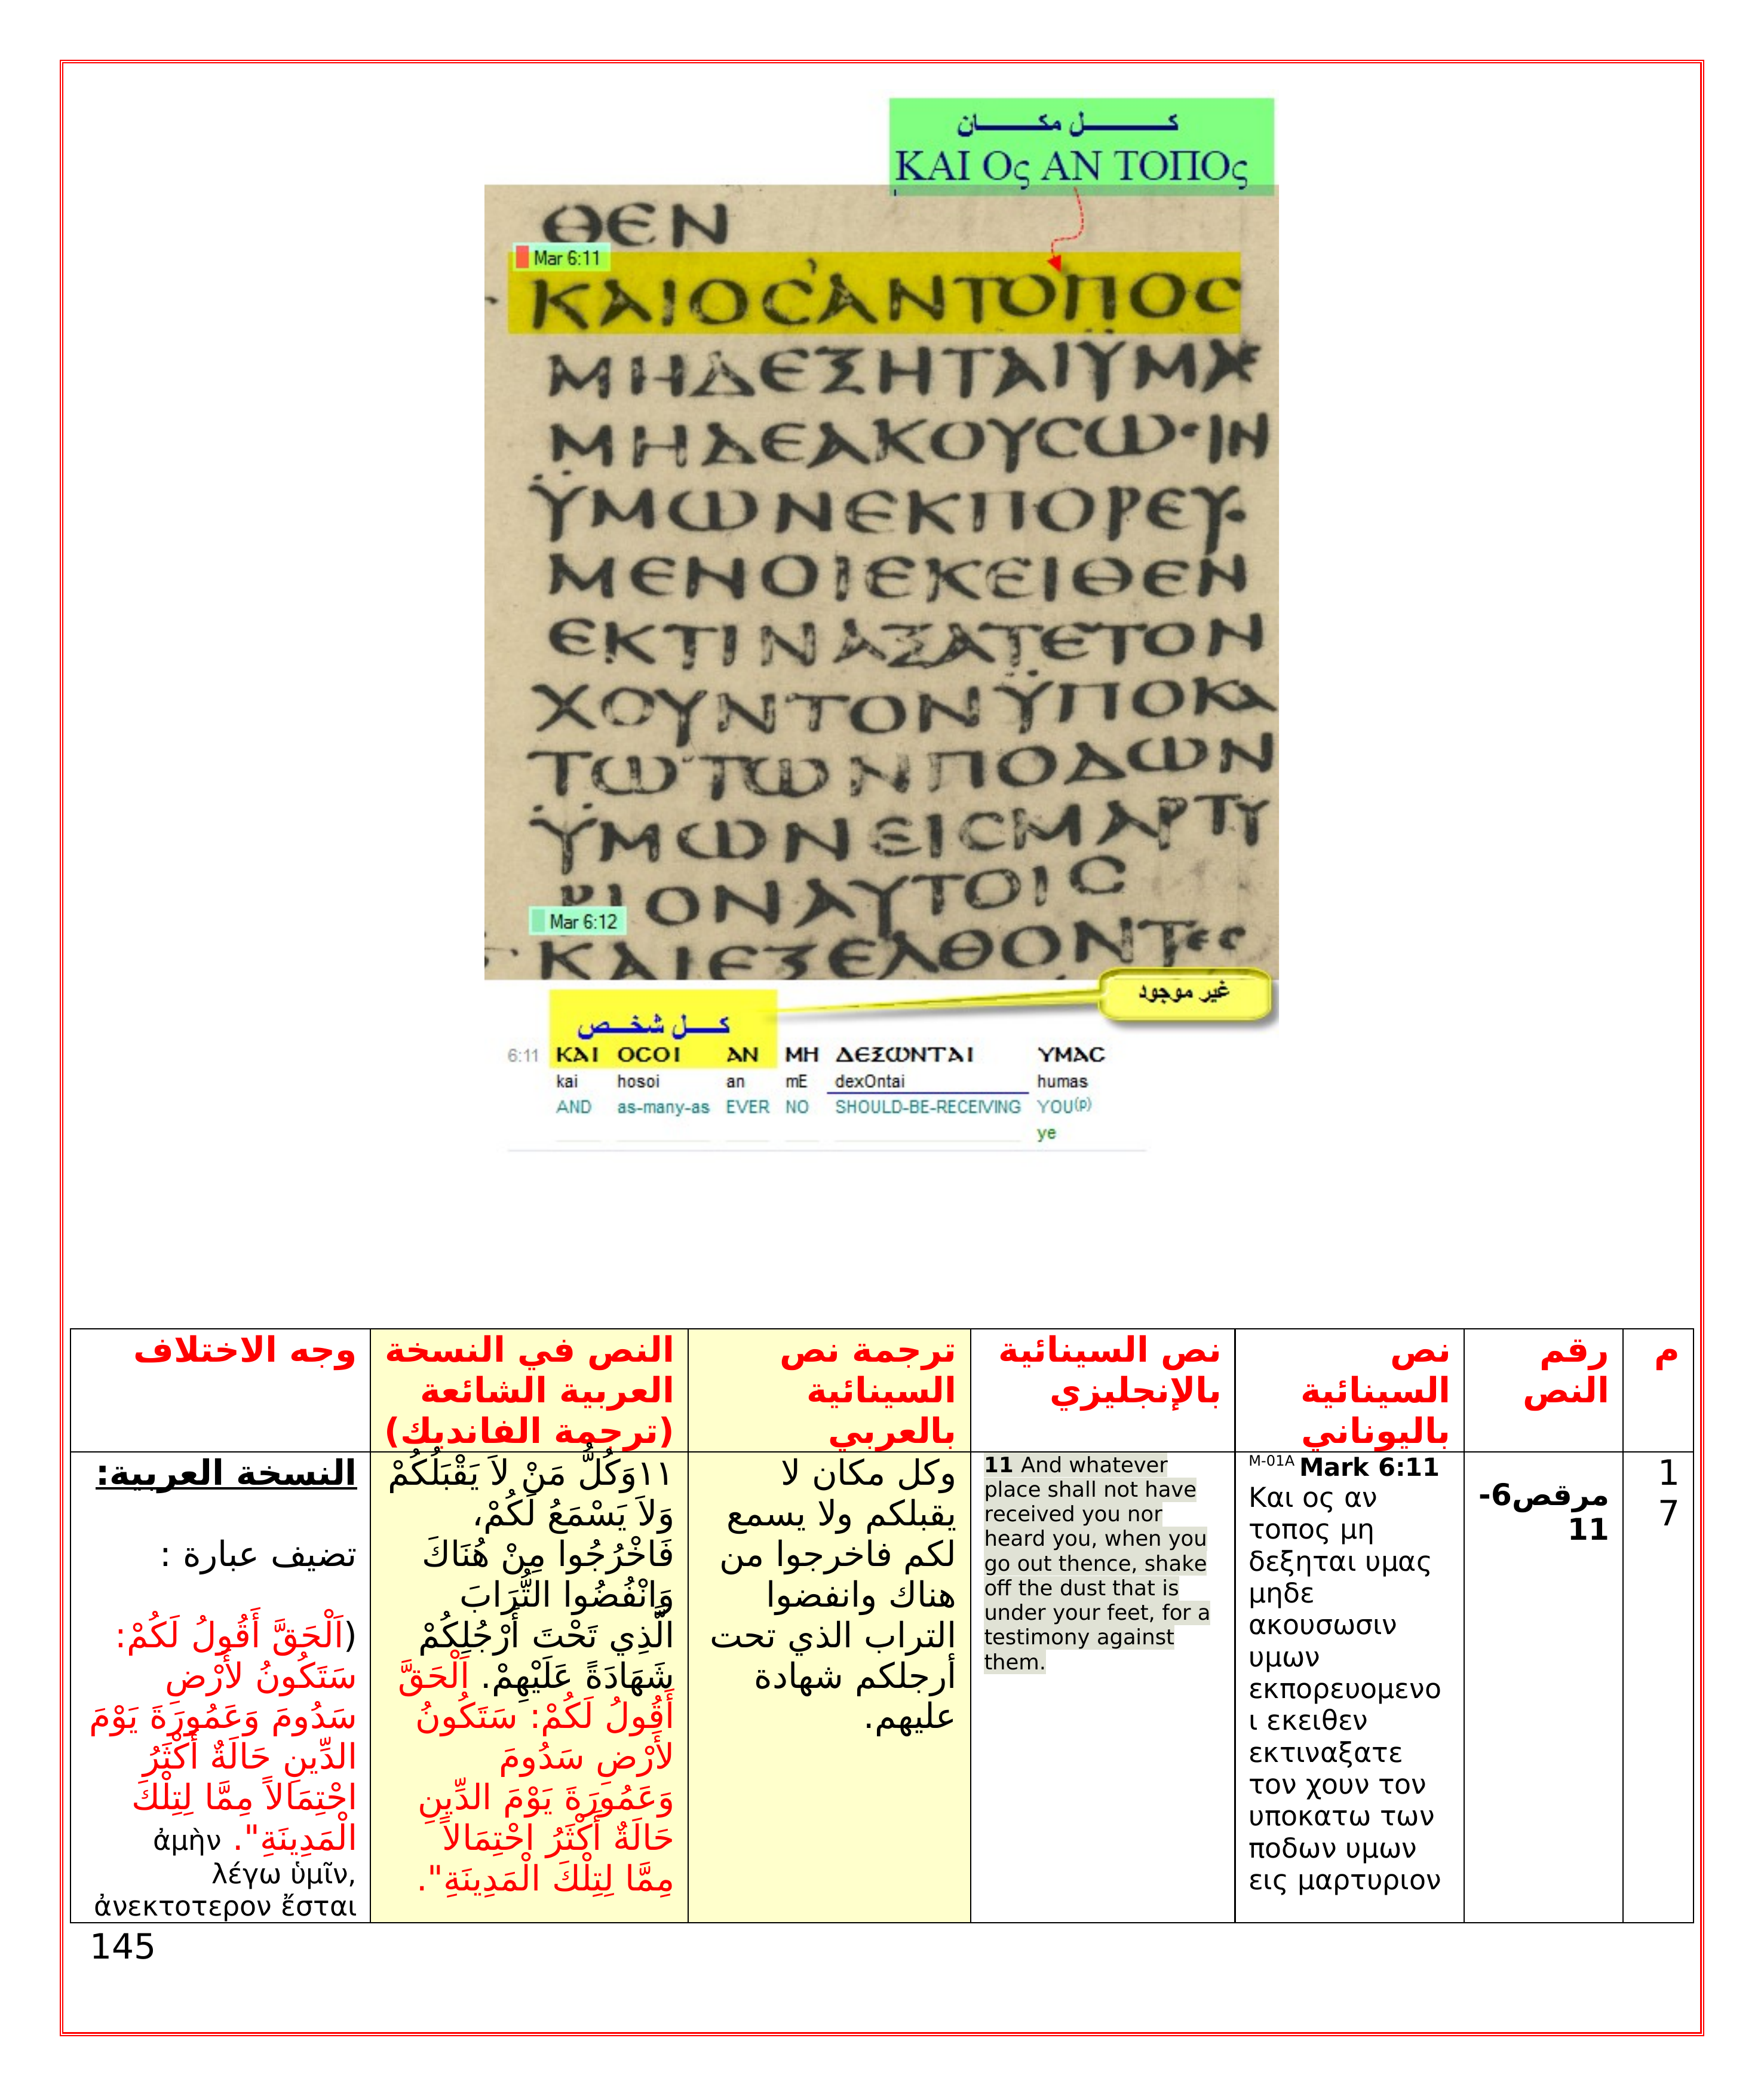 كــــل مكــــان
ΚΑΙ Ος ΑΝ ΤΟΠΟς
ΘΕΝ
Mar 6:11
ΚΑΙΟϹΑΝΤΟΠΟϹ
ΜΗΔΕΞΗΤΑΙΫΜΑϹ
ΜΗΔΕΑΚΟΥϹΩ·ΙΝ
ΫΜΩΝΕΚΠΟΡΕΥ·
ΜΕΝΟΙΕΚΕΙΘΕΝ
ΕΚΤΙΝΑΞΑΤΕΤΟΝ
ΧΟΥΝΤΟΝΫΠΟΚΑ
ΤΩΤΩΝΠΟΔΩΝ
ΫΜΩΝΕΙϹΜΑΡΤΥ
ΡΙΟΝΑΥΤΟΙϹ
Mar 6:12
ΚΑΙΕΞΕΛΘΟΝΤΕϹ
غير موجود
كـــل شخــص
6:11 ΚΑΙ ΟϹΟΙ ΑΝ ΜΗ ΔΕΞΩΝΤΑΙ ΥΜΑϹ
kai hosoi an mE dexOntai humas
AND as-many-as EVER NO SHOULD-BE-RECEIVING YOU(p)
ye
م
رقم
النص
نص
السينائية
باليوناني
نص السينائية
بالإنجليزي
ترجمة نص
السينائية
بالعربي
النص في النسخة
العربية الشائعة
(ترجمة الفانديك)
وجه الاختلاف
1
7
مرقص6-
11
M-01A Mark 6:11
Και ος αν
τοπος μη
δεξηται υμας
μηδε
ακουσωσιν
υμων
εκπορευομενο
ι εκειθεν
εκτιναξατε
τον χουν τον
υποκατω των
ποδων υμων
εις μαρτυριον
11 And whatever
place shall not have
received you nor
heard you, when you
go out thence, shake
off the dust that is
under your feet, for a
testimony against
them.
وكل مكان لا
يقبلكم ولا يسمع
لكم فاخرجوا من
هناك وانفضوا
التراب الذي تحت
أرجلكم شهادة
عليهم.
١١وَكُلُّ مَنْ لاَ يَقْبَلُكُمْ
وَلاَ يَسْمَعُ لَكُمْ،
فَاخْرُجُوا مِنْ هُنَاكَ
وَانْفُضُوا التُّرَابَ
الَّذِي تَحْتَ أَرْجُلِكُمْ
شَهَادَةً عَلَيْهِمْ. اَلْحَقَّ
أَقُولُ لَكُمْ: سَتَكُونُ
لأَرْضِ سَدُومَ
وَعَمُورَةَ يَوْمَ الدِّينِ
حَالَةٌ أَكْثَرُ احْتِمَالاً
مِمَّا لِتِلْكَ الْمَدِينَةِ".
النسخة العربية:
تضيف عبارة :
(اَلْحَقَّ أَقُولُ لَكُمْ:
سَتَكُونُ لأَرْضِ
سَدُومَ وَعَمُورَةَ يَوْمَ
الدِّينِ حَالَةٌ أَكْثَرُ
احْتِمَالاً مِمَّا لِتِلْكَ
الْمَدِينَةِ". ἀμὴν
λέγω ὑμῖν,
ἀνεκτοτερον ἔσται
145